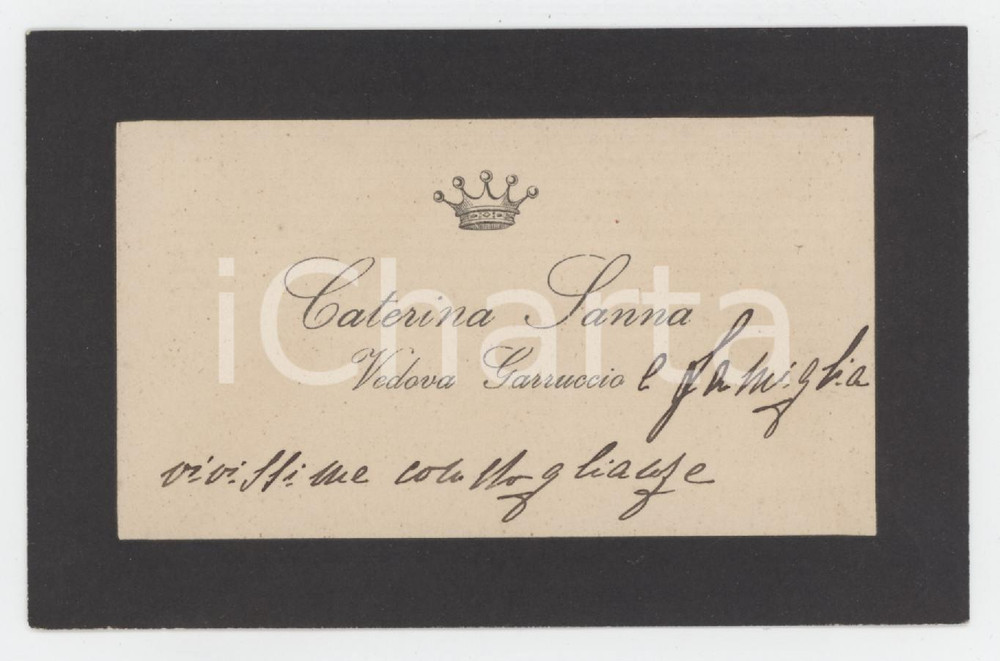 Caterina Sanna
Vedova Garruccio e famiglia
vivissime condoglianze
iCharta